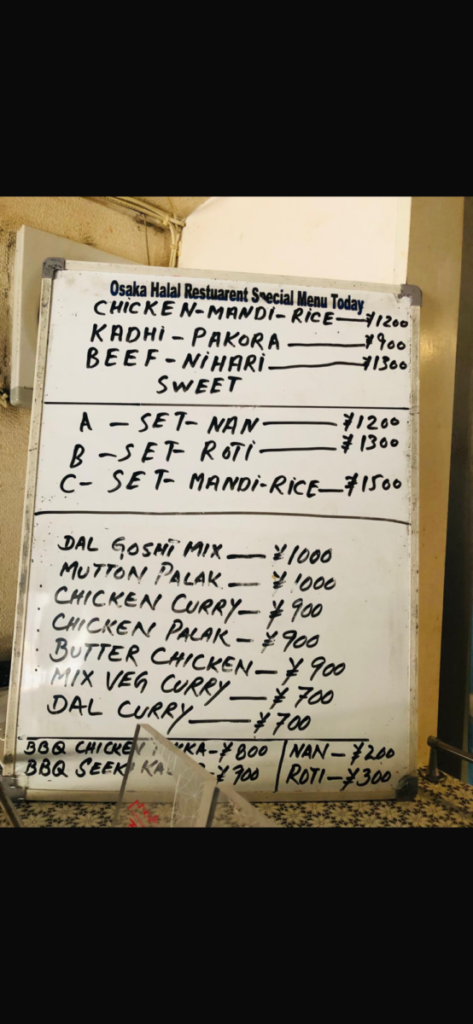 Osaka Halal Restuarent Special Menu Today
CHICKEN-MANDI-RICE—¥1200
KADHI-PAKORA—¥900
BEEF-NIHARI—¥1300
SWEET
A-SET-NAN—¥1200
B-SET-ROTI—¥1300
C-SET-MANDI-RICE—¥1500
DAL GOSHT MIX—¥1000
MUTTON PALAK—¥1000
CHICKEN CURRY—¥900
CHICKEN PALAK-¥900
BUTTER CHICKEN-¥900
MIX VEG CURRY—¥700
DAL CURRY—¥700
BBQ CHICKEN -¥800 NAN-¥200
BBQ SEEK ROTI-¥300